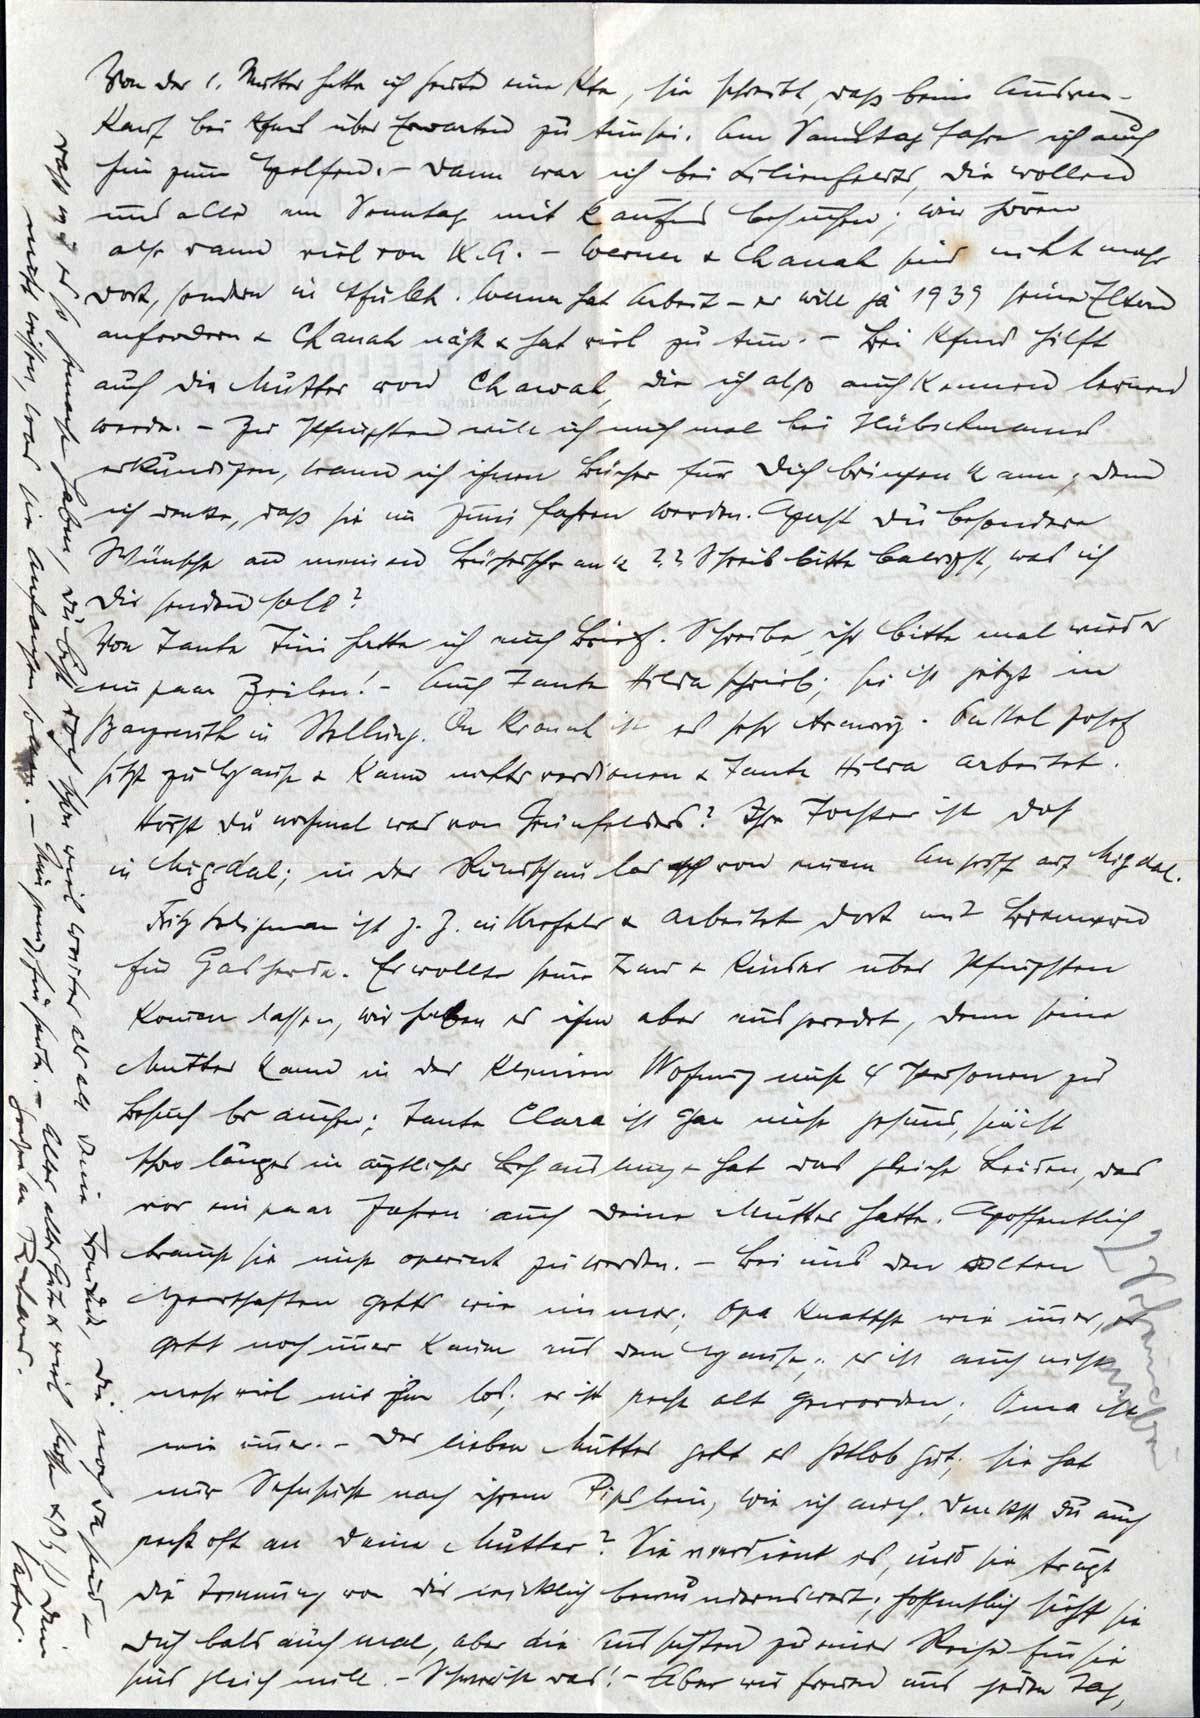 Von der l. Mutter hatte ich heute eine Kte, sie schreibt, daß beim Ausver-
kauf bei Kfms über Erwarten zu tun sei. Am Samstag fahre ich auch
hin zum Helfen. – Dann war ich bei Lilienfelds, die wollen
uns alle am Sonntag mit Kaufms besuchen; wir hören
also dann viel von K.G. – Werner & Chanah sind nicht mehr
dort, sondern in Afuleh. Werner hat Arbeit – er will ja 1939 seine Eltern
anfordern & Chanah näht & hat viel zu tun. – Bei Kfms hilft
auch die Mutter von Chanah, die ich also auch kennen lernen
werde. – Zu Pfingsten will ich mich mal bei Hübschmanns
erkundigen, wann ich ihnen Bücher für Dich bringen kann, denn
ich denke, daß sie im Juni fahren werden. Hast Du besondere
Wünsche an meinen Bücherschrank?? Schreib bitte baldigst, was ich
Dir senden soll?
Von Tante Tini hatte ich auch Brief. Schreibe ihr bitte mal wieder
ein paar Zeilen! – Auch Tante Hilda schrieb; sie ist jetzt in
Bayreuth in Stellung. In Kronach ist es sehr traurig. Onkel Josef
sitzt zu Hause & kann nichts verdienen & Tante Hilda arbeitet.
Hörst Du nochmal was von Grünfelders? Ihre Tochter ist doch
in Migdal; in der Rundschau las ich von einem Angriff auf Migdal.
Fritz ist z. Z. in Krefeld & arbeitet dort mit
für Gasherde. Er wollte seine Frau & Kinder über Pfingsten
kommen lassen, wir haben es ihm aber ausgeredet, denn seine
Mutter kann in der kleinen Wohnung nicht 4 Personen zu
Besuch brauchen; Tante Clara ist gar nicht gesund, sie ist
schon länger in ärztlicher Behandlung & hat das gleiche Leiden, das
vor ein paar Jahren auch Deine Mutter hatte. Hoffentlich
braucht sie nicht operiert zu werden. – Bei uns den alten
Herrschaften gehts wie immer; Opa knatscht wie immer, er
geht noch immer kaum aus dem Hause; er ist auch nicht
mehr viel mit ihm los; er ist recht alt geworden; Oma ist
wie immer. – Der lieben Mutter geht es gottlob gut; sie hat
nur Sehnsucht nach ihrem Pipslein, wie ich auch. Denkst Du auch
recht oft an Deine Mutter? Sie verdient es, und sie trägt
die Trennung von Dir wirklich bewundernswert; hoffentlich sieht sie
Dich bald auch mal, aber die Aussichten zu einer Reise für sie
sind gleich null. – Schade was! – Aber wir freuen uns jeden Tag,
daß wir es so gemacht haben, Du bist doch schon viel weiter als all Deine Freunde, die noch da sind &
nicht wissen, was sie anfangen sollen. – Nun genug für heute. – Alles, alles Gute & viel Grüße & Kß! Dein
Vater.